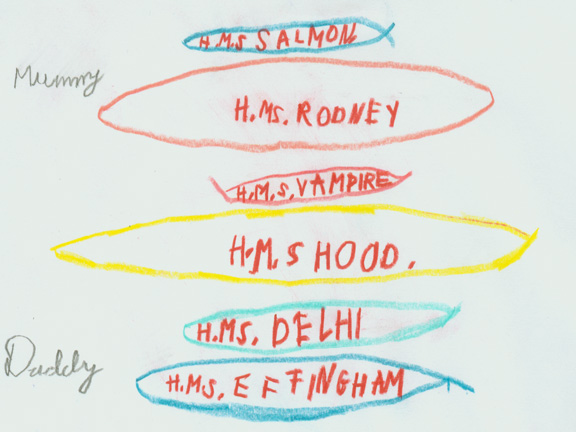 H.M.S SALMON
Mummy
H.MS. RODNEY
H.M.S, VAMPIRE
H.M.S HOOD.
H.MS. DELHI
Daddy
H.MS, EFFINGHAM